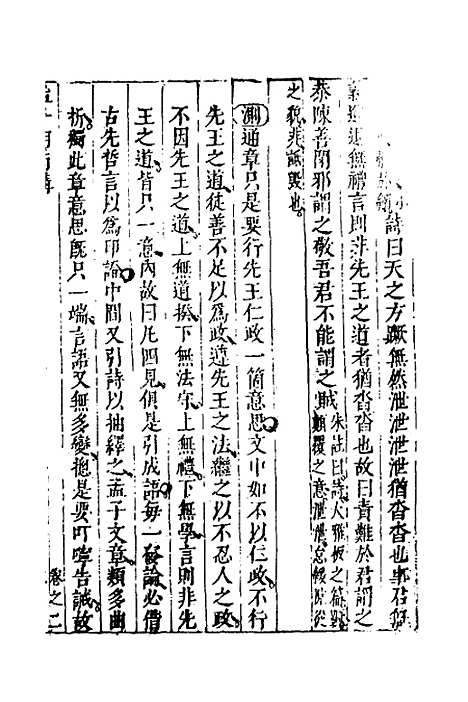 詩曰天之方蹶無然泄泄泄泄猶沓沓也事君無
義進退無禮言則非先王之道者猶沓沓也故曰責難於君謂之
恭陳善閉邪謂之敬吾君不能謂之賊朱註曰詩大雅板之篇蹶
顛覆之意泄泄怠緩悅從
之貌非詆毀也
測通章只是要行先王仁政一箇意思文中如不以仁政不行
先王之道徒善不足以為政遵先王之法繼之以不忍人之政
不因先王之道上無道揆下無法守上無禮下無學言則非先
王之道皆只一意內故曰凡四見俱是引成語每一發論必借
古先哲言以為印證中間又引詩以抽繹之孟子文章類多曲
折獨此章意思旣只一端言語又無多變換是要叮嚀告誡故
卷之二